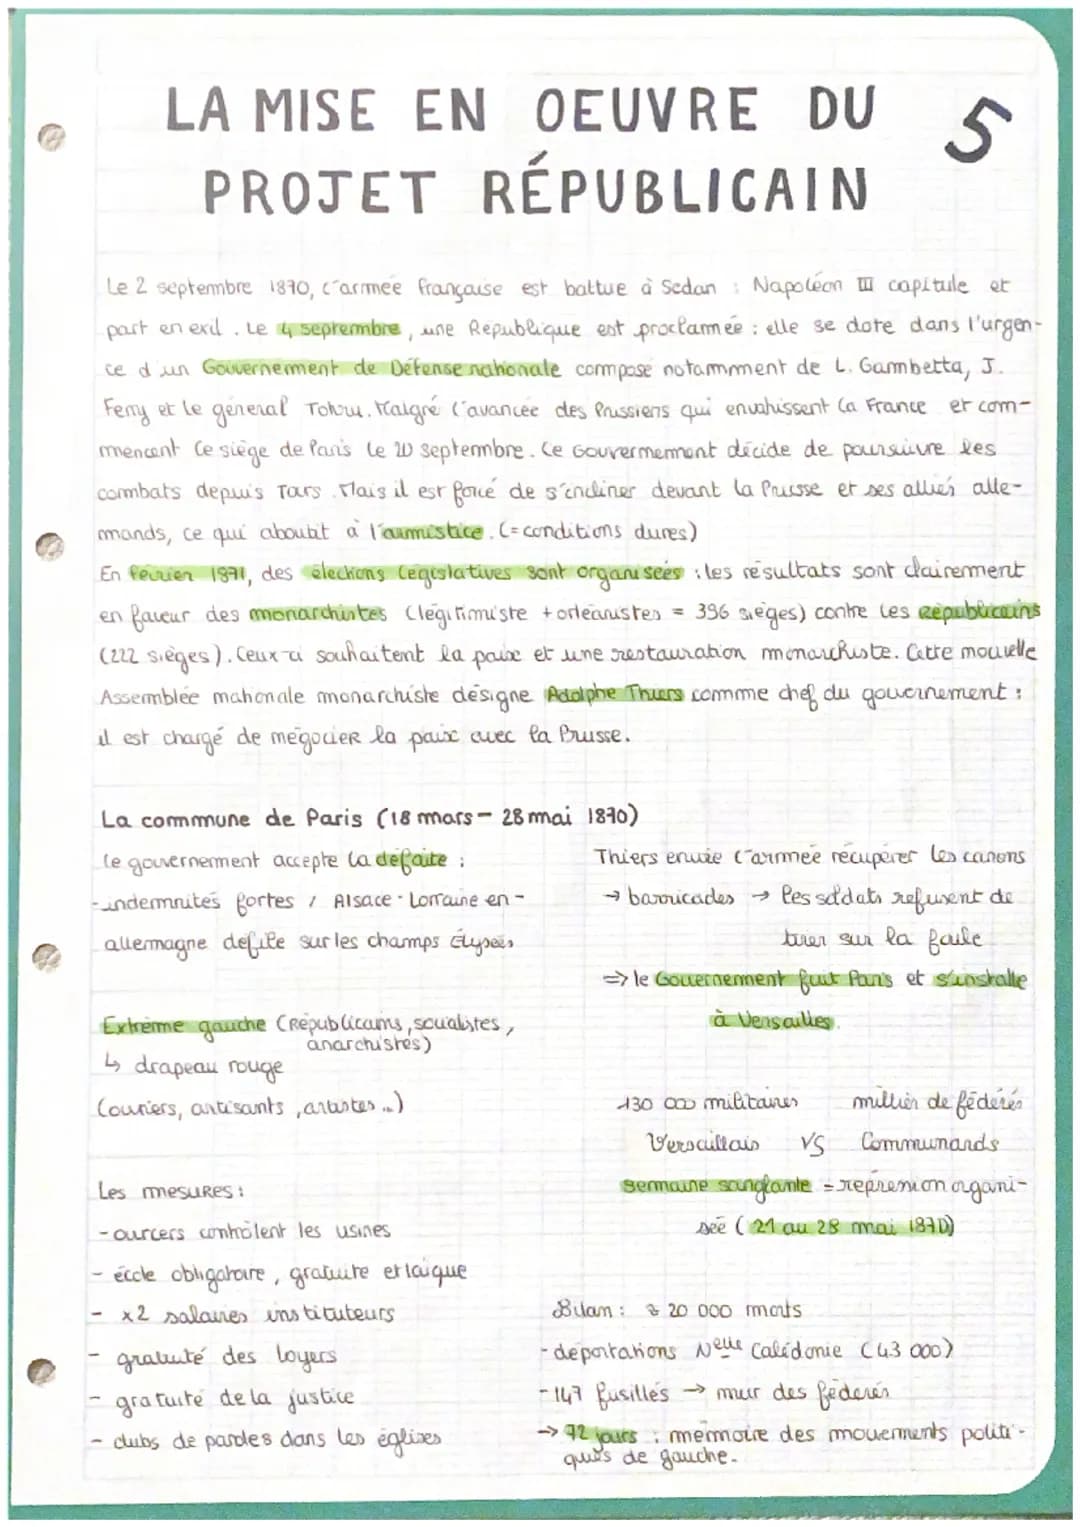 LA MISE EN OEUVRE DU
PROJET RÉPUBLICAIN
5
Le 2 septembre 1870, l'armée française est battue à Sedan : Napoléon III capitule et
part en exil. Le 4 septembre, une République est proclamée : elle se dote dans l'urgen-
ce d'un Gouvernement de Défense nationale composé notamment de L. Gambetta, J.
Ferry et le général Tohru. Malgré l'avancée des Prussiens qui envahissent la France et com-
mencent le siège de Paris le 20 septembre. Le Gouvernement décide de poursuivre les
combats depuis Tars. Mais il est forcé de s'incliner devant la Prusse et ses alliés alle-
mands, ce qui aboutit à l'armistice. (= conditions dures)
En février 1871, des élections législatives sont organisées : les résultats sont clairement
en faveur des monarchistes (légitimiste + orléanistes = 396 sièges) contre les Républicains
(222 sièges). Ceux-ci souhaitent la paix et une restauration monarchiste. Cette nouvelle
Assemblée nationale monarchiste désigne Adolphe Thiers comme chef du gouvernement :
il est chargé de négocier la paix avec la Prusse.
La commune de Paris (18 mars - 28 mai 1870)
le gouvernement accepte la défaite :
- indemnités fortes / Alsace - Lorraine en -
allemagne défile sur les champs Élysées
Extrême gauche (Républicains, socialistes,
anarchistes)
↳ drapeau rouge
(ouvriers, artisants, artistes ...)
Les mesures :
- ourcers contrôlent les usines
- école obligatoire, gratuite et laïque
- x2 salaires instituteurs
- gratuité des loyers
- gratuité de la justice
- clubs de paroles dans les églises
Thiers envoie l'armée récupérer les canons
→ barricades → les soldats refusent de
tirer sur la foule
=> le Gouvernement fuit Paris et s'installe
à Versailles.
130 000 militaires millier de fédérés
Versaillais VS Communards
semaine sanglante = répression organi-
sée (21 au 28 mai 1870)
Bilan : ≈ 20 000 morts
- déportations Nelle Calédonie (43 000)
- 147 fusillés → mur des fédérés
→ 72 jours : mémoire des mouvements politi-
ques de gauche.